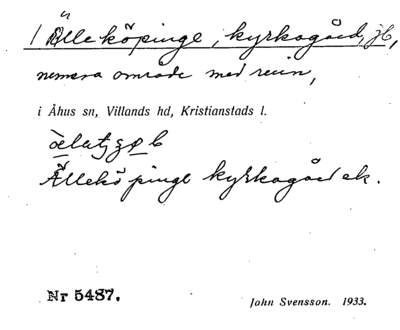 Älleköpinge, kyrkogård, jb,
område med ruin,
i Åhus sn, Villands hd, Kristianstads l.
Älleköpinge kyrkogård ak.
Nr 5487.
John Svensson. 1933.